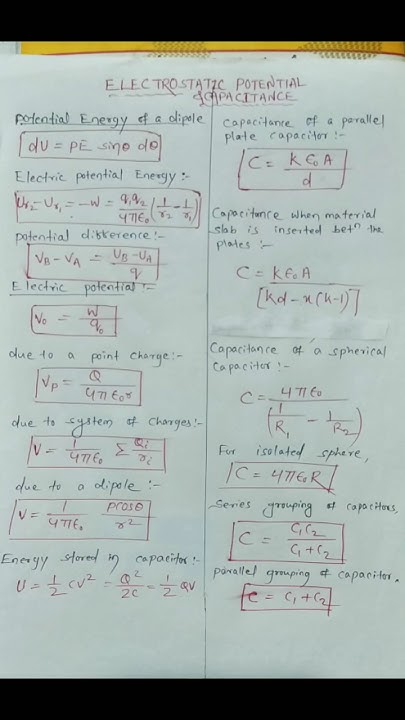 ELECTROSTATIC POTENTIAL
& CAPACITANCE
Potential Energy of a dipole
dU = PE sinθ dθ
Electric potential Energy:-
Ur₂ - Ur₁ = -W = q₁q₂/4πε₀ (1/r₂ - 1/r₁)
potential difference:-
V_B - V_A = U_B - U_A / q
Electric potential:-
V₀ = W/q₀
due to a point charge:-
V_P = Q/4πε₀r
due to system of charges:-
V = 1/4πε₀ Σ Qi/ri
due to a dipole:-
V = 1/4πε₀ pcosθ/r²
Energy stored in capacitor:-
U = 1/2 CV² = Q²/2C = 1/2 QV
Capacitance of a parallel
plate capacitor:-
C = kε₀A/d
Capacitance when material
slab is inserted betⁿ the
plates:-
C = kε₀A/[kd-x(k-1)]
Capacitance of a spherical
Capacitor:-
C = 4πε₀/(1/R₁ - 1/R₂)
For isolated sphere,
C = 4πε₀R
Series grouping of capacitors,
C = C₁C₂/C₁+C₂
parallel grouping of capacitor,
C = C₁+C₂